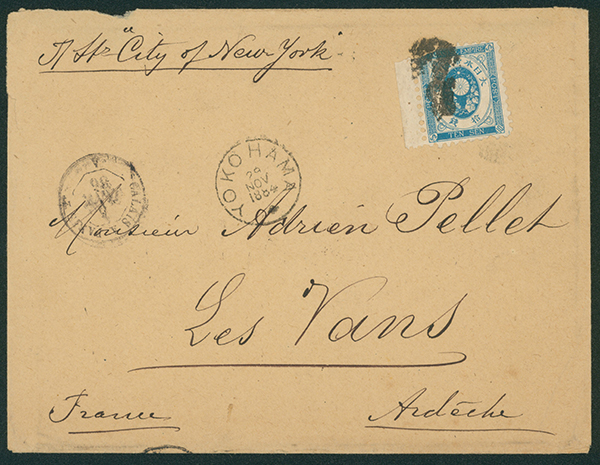 "City of New-York"
大日本
TEN SEN
YOKOHAMA
29
NOV
1884
CALAIS
Monsieur Adrien Pellet
Les Vans
France Ardèche